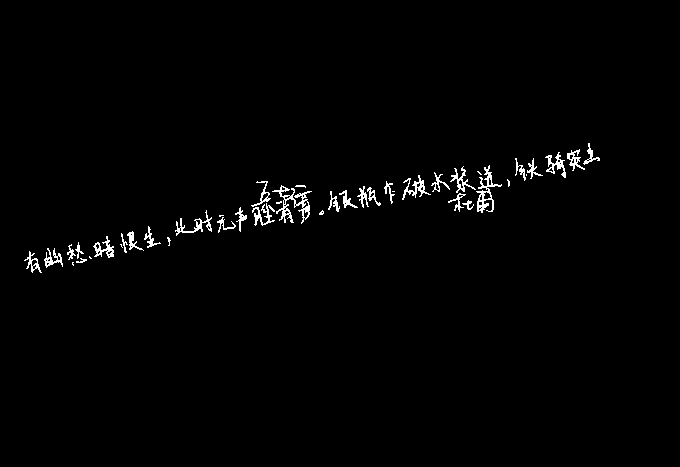 有幽愁暗恨生，此时无声胜有声。银瓶乍破水浆迸，铁骑突出
杜甫